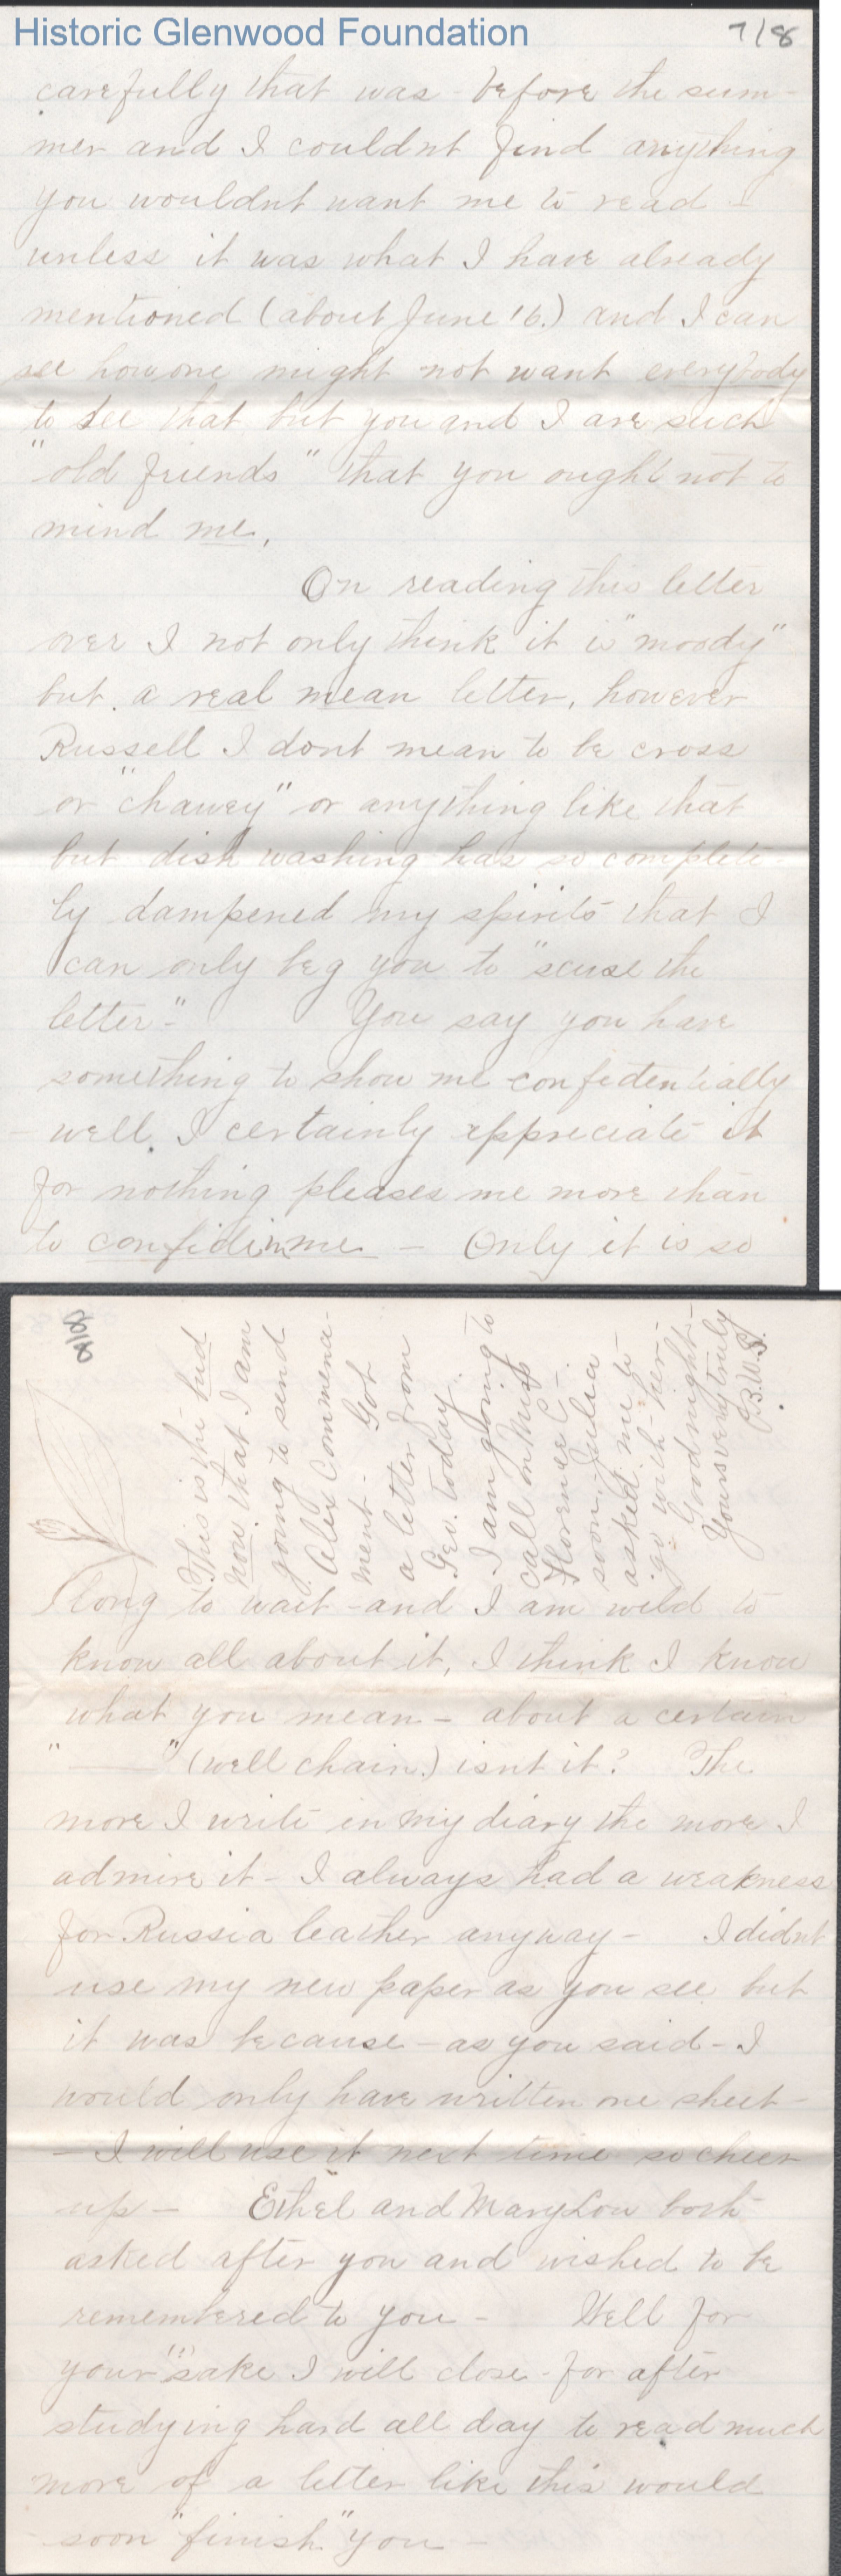 Historic Glenwood Foundation
7/8
carefully that was - before the sum-
mer and I couldnt find anything
you wouldnt want me to read -
unless it was what I have already
mentioned (about June '16.) and I can
see how one might not want everybody
to see that but you and I are such
"old friends" that you ought not to
mind me.
On reading this letter
over I not only think it is "moody"
but a real mean letter, however
Russell I dont mean to be cross
or "chawey" or anything like that
but dish washing has so complete-
ly dampened my spirits that I
can only beg you to "scuse the
letter"- You say you have
something to show me confidentially
- well I certainly appreciate it
for nothing pleases me more than
to confide in me - Only it is so
8/8
long to wait - and I am wild to
know all about it, I think I know
what you mean - about a certain
"——" (well chain.) isnt it? The
more I write in my diary the more I
admire it - I always had a weakness
for Russia leather anyway - I didnt
use my new paper as you see but
it was because - as you said - I
would only have written one sheet -
- I will use it next time so cheer
up - Ethel and MaryLou both
asked after you and wished to be
remembered to you - Well for
your "sake I will close - for after
studying hard all day to read much
more of a letter like this would
soon "finish" you -
This is the bud
now that I am
going to send
Alex Commence-
ment - Got
a letter from
Geo. today.
I am going to
call on Miss
Florence C-
soon - Julia
asked me to
go with her -
Goodnight -
Yours very truly
B.W.S.